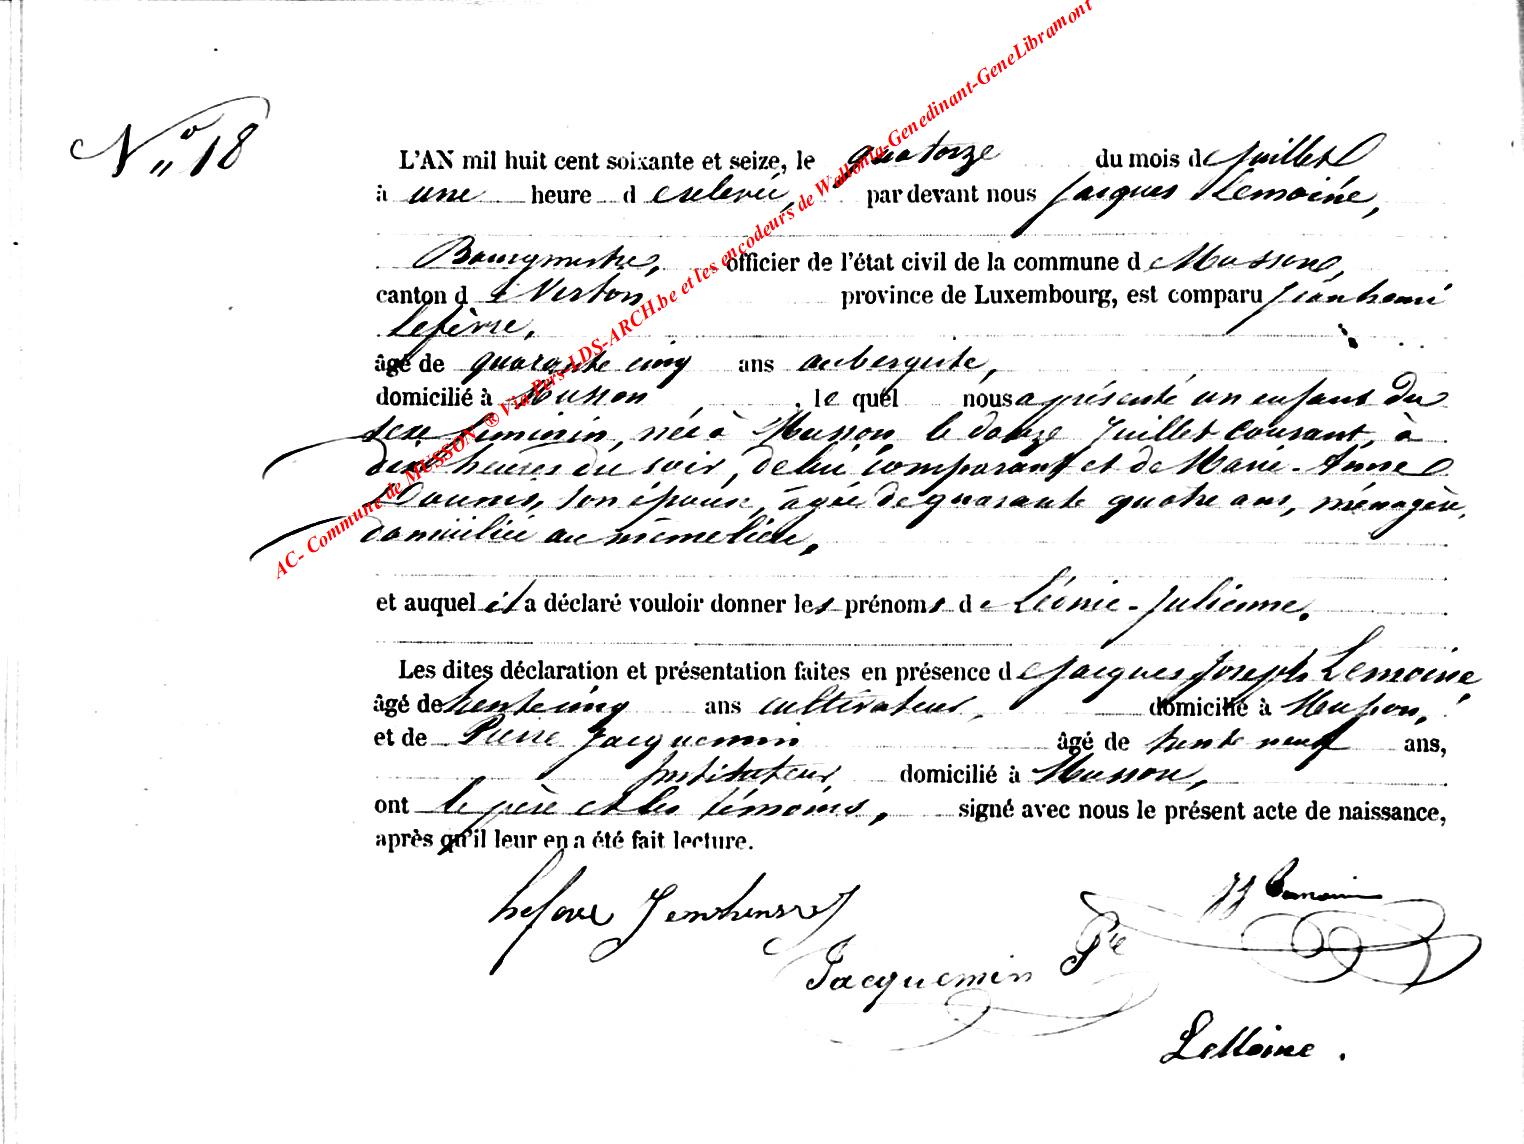 N° 18
L'AN mil huit cent soixante et seize, le quatorze du mois de Juillet
à une heure de relevée, par devant nous Jacques Lemoine,
Bourgmestre, officier de l'état civil de la commune de Musson,
canton de Virton province de Luxembourg, est comparu Jean henri
Lefèvre,
âgé de quarante cinq ans aubergiste,
domicilié à Musson, le quel nous a présenté un enfant du
sexe féminin, née à Musson, le douze Juillet courant, à
heures du soir, de lui comparant et de Marie-Anne
son épouse, âgée de quarante quatre ans, ménagère,
domiciliée au même lieu,
et auquel il a déclaré vouloir donner les prénoms de Léonie-Julienne.
Les dites déclaration et présentation faites en présence de Jacques Joseph Lemoine
âgé de trente cinq ans cultivateur, domicilié à Musson,
et de Pierre Jacquemin âgé de trente neuf ans,
Instituteur domicilié à Musson,
ont le père et les témoins, signé avec nous le présent acte de naissance,
après qu'il leur en a été fait lecture.
JJ Lemoine
Jacquemin Pre
LeMoine.
AC- Commune de MUSSON ® Via Pers-LDS-ARCH.be et les encodeurs de Wallonia-Genedinant-GeneLibramont